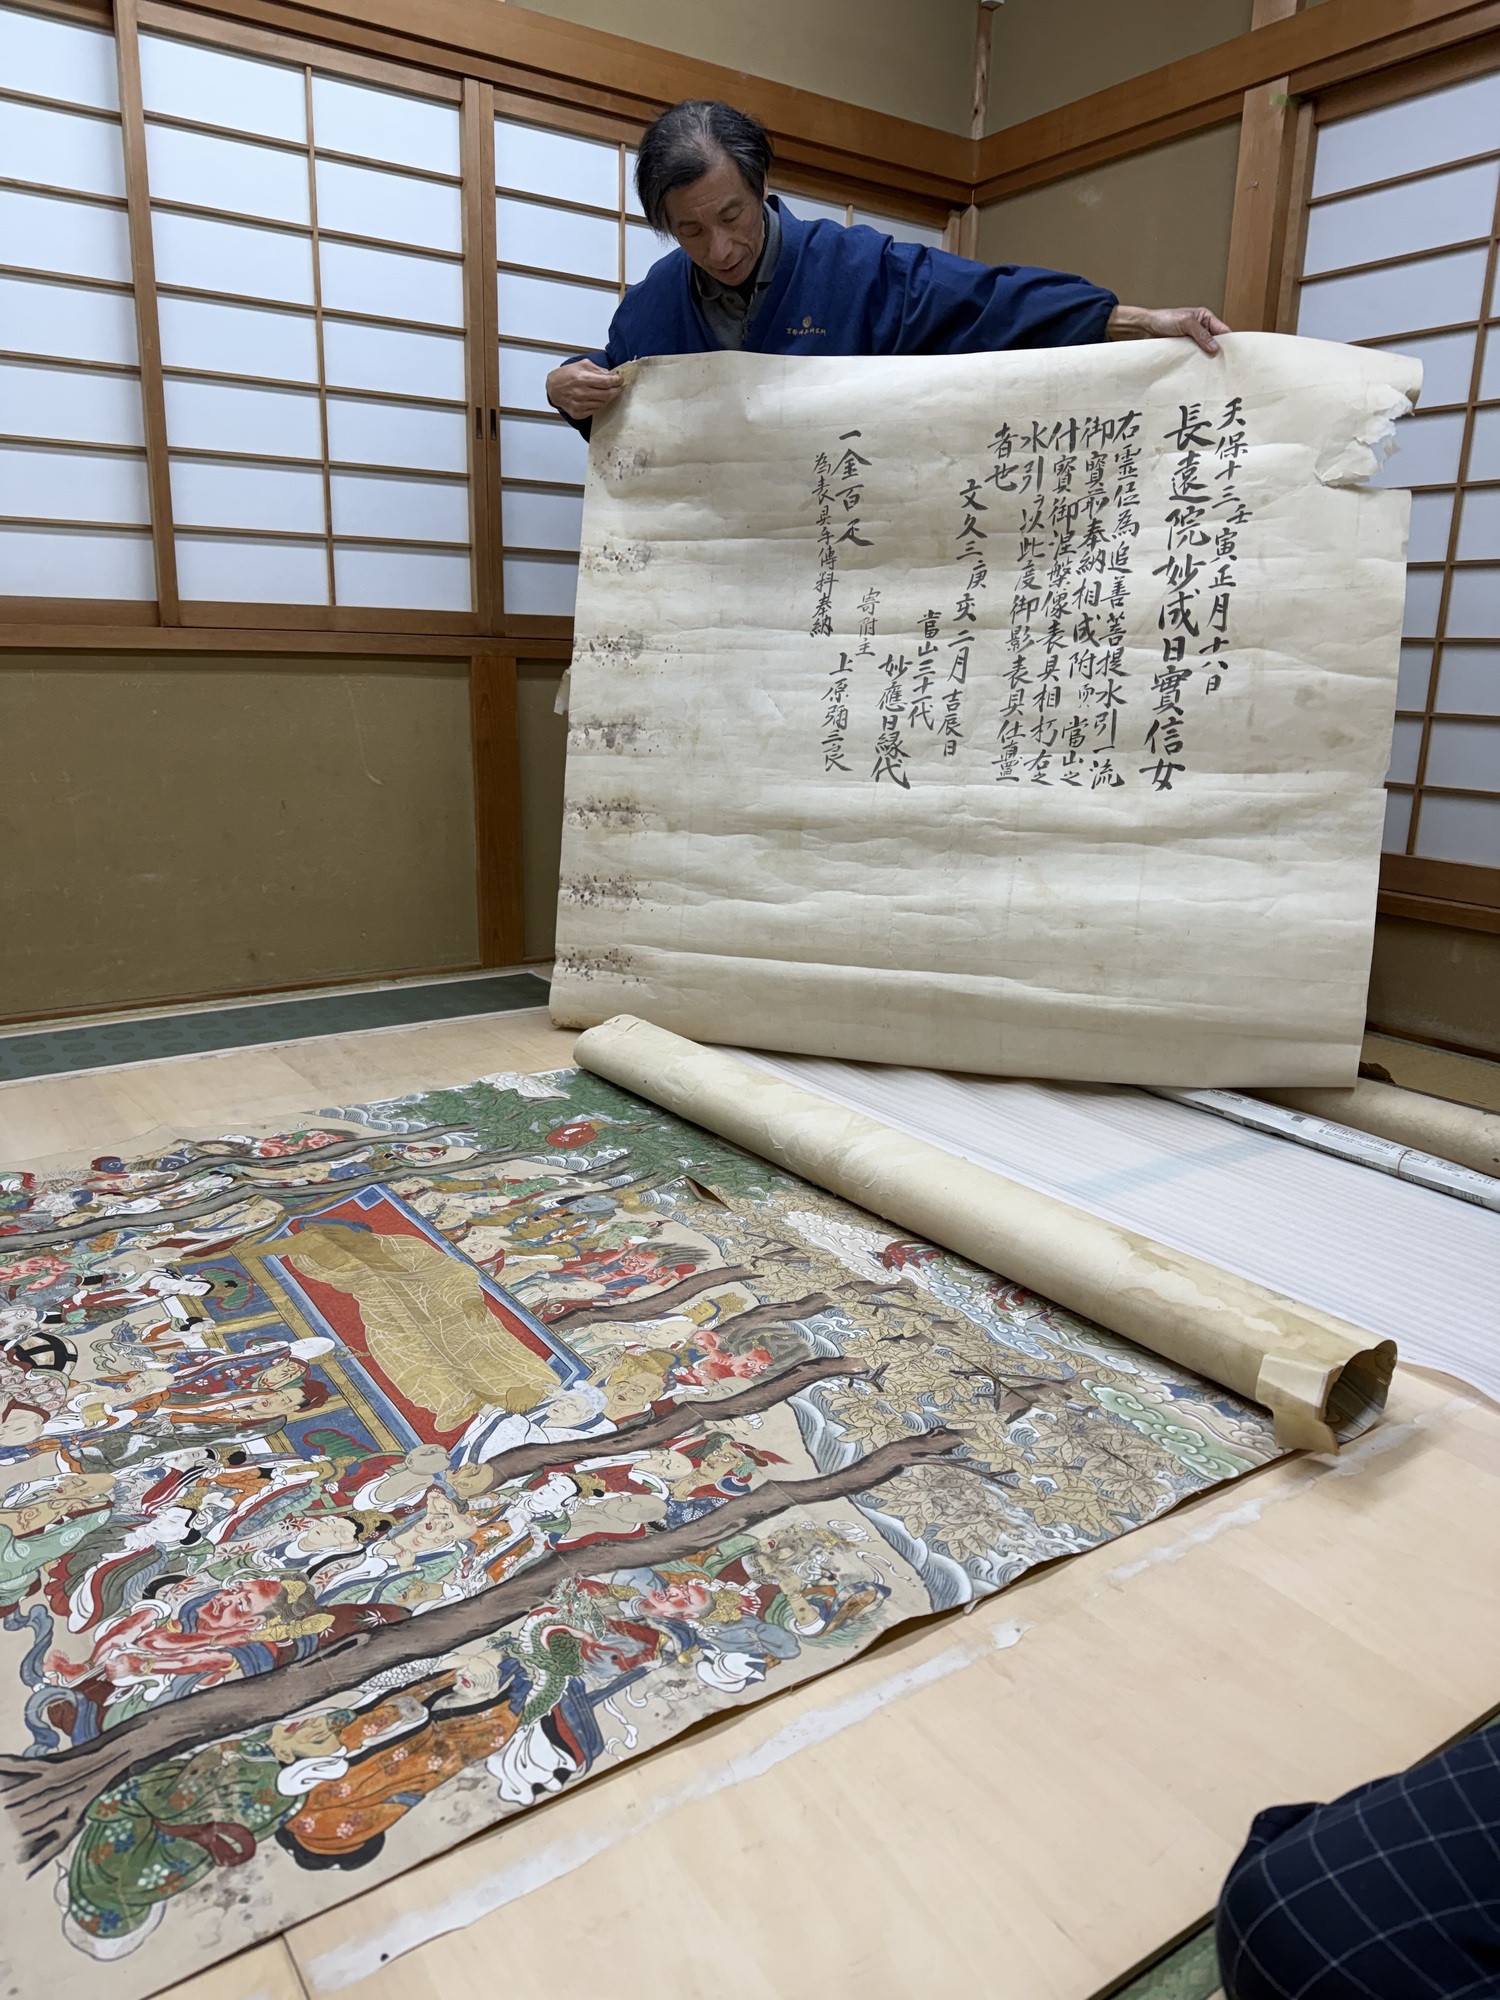 天保十三壬寅正月十八日
長遠院妙成日實信女
右霊位為追善菩提水引一流
御寳前奉納相成附而當山之
什寳御涅槃像表具相朽右之
水引ヲ以此度御影表具仕直置
者也
文久三癸亥二月吉辰日
當山三十一代
妙應日縁代
寄附主
一金百疋 上原彌三良
為表具手傳料奉納